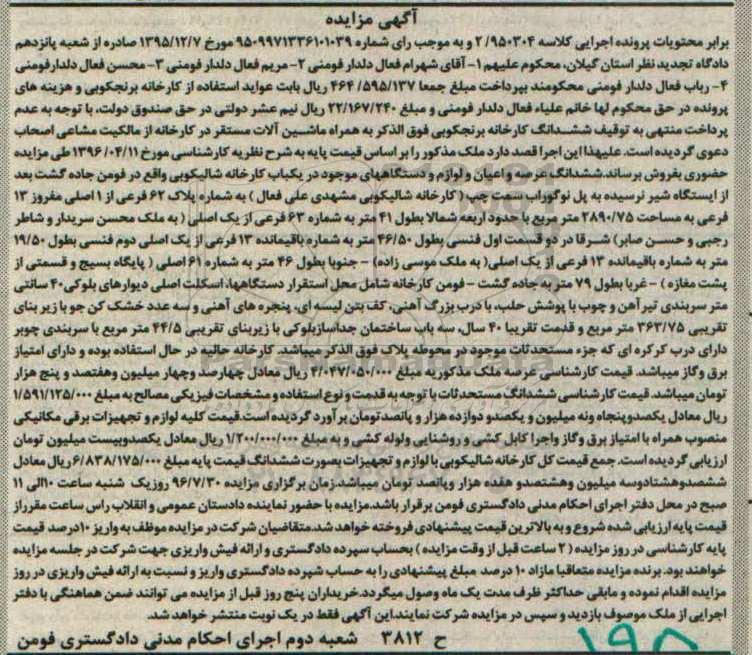 آگهی مزایده
برابر محتویات پرونده اجرایی کلاسه ۲/۹۵۰۳۰۴ و به موجب رای شماره ۹۵۰۹۹۷۱۳۳۶۱۰۱۰۳۹ مورخ ۱۳۹۵/۱۲/۷ صادره از شعبه پانزدهم
دادگاه تجدید نظر استان گیلان، محکوم علیهم ۱- آقای شهرام فعال دلدار فومنی ۲- مریم فعال دلدار فومنی ۳- محسن فعال دلدارفومنی
۴- رباب فعال دلدار فومنی محکومند بپرداخت مبلغ جمعا ۴۶۴/۵۹۵/۱۳۷ ریال بابت عواید استفاده از کارخانه برنجکوبی و هزینه های
پرونده در حق محکوم لها خانم علیاء فعال دلدار فومنی و مبلغ ۲۲/۱۶۷/۲۴۰ ریال نیم عشر دولتی در حق صندوق دولت، با توجه به عدم
پرداخت منتهی به توقیف ششدانگ کارخانه برنجکوبی فوق الذکر به همراه ماشین آلات مستقر در کارخانه از مالکیت مشاعی اصحاب
دعوی گردیده است. علیهذا این اجرا قصد دارد ملک مذکور را بر اساس قیمت پایه به شرح نظریه کارشناسی مورخ ۱۳۹۶/۰۴/۱۱ طی مزایده
حضوری بفروش برساند.ششدانگ عرصه و اعیان و لوازم و دستگاههای موجود در یکباب کارخانه شالیکوبی واقع در فومن جاده گشت بعد
از ایستگاه شیر نرسیده به پل نوگوراب سمت چپ ( کارخانه شالیکوبی مشهدی علی فعال ) به شماره پلاک ۶۲ فرعی از ۱ اصلی مفروز ۱۳
فرعی به مساحت ۲۸۹۰/۷۵ متر مربع با حدود اربعه شمالا بطول ۴۱ متر به شماره ۶۳ فرعی از یک اصلی ( به ملک محسن سریدار و شاطر
رجبی و حسن صابر) شرقا در دو قسمت اول فنسی بطول ۴۶/۵۰ متر به شماره باقیمانده ۱۳ فرعی از یک اصلی دوم فنسی بطول ۱۹/۵۰
متر به شماره باقیمانده ۱۳ فرعی از یک اصلی( به ملک موسی زاده) – جنوبا بطول ۴۶ متر به شماره ۶۱ اصلی ( پایگاه بسیج و قسمتی از
پشت مغازه ) – غربا بطول ۷۹ متر به جاده گشت – فومن کارخانه شامل محل استقرار دستگاهها، اسکلت اصلی دیوارهای بلوکی ۴۰ سانتی
متر سربندی تیر آهن و چوب با پوشش حلب، با درب بزرگ آهنی، کف بتن لیسه ای، پنجره های آهنی و سه عدد خشک کن جو با زیر بنای
تقریبی ۳۶۳/۷۵ متر مربع و قدمت تقریبا ۴۰ سال، سه باب ساختمان جداسازبلوکی با زیربنای تقریبی ۴۴/۵ متر مربع با سربندی چوبر
دارای درب کرکره ای که جزء مستحدثات موجود در محوطه پلاک فوق الذکر میباشد. کارخانه حالیه در حال استفاده بوده و دارای امتیاز
برق وگاز میباشد. قیمت کارشناسی عرصه ملک مذکوربه مبلغ ۴/۰۴۷/۰۵۰/۰۰۰ ریال معادل چهارصد وچهار میلیون وهفتصد و پنج هزار
تومان میباشد. قیمت کارشناسی ششدانگ مستحدثات با توجه به قدمت و نوع استفاده و مشخصات فیزیکی مصالح به مبلغ ۱/۵۹۱/۱۲۵/۰۰۰
ریال معادل یکصدوپنجاه ونه میلیون و یکصدو دوازده هزار و پانصدتومان برآورد گردیده است.قیمت کلیه لوازم و تجهیزات برقی مکانیکی
منصوب همراه با امتیاز برق وگاز واجرا کابل کشی و روشنایی ولوله کشی و به مبلغ ۱/۲۰۰/۰۰۰/۰۰۰ ریال معادل یکصدوبیست میلیون تومان
ارزیابی گردیده است. جمع قیمت کل کارخانه شالیکوبی با لوازم و تجهیزات بصورت ششدانگ قیمت پایه مبلغ ۶/۸۳۸/۱۷۵/۰۰۰ ریال معادل
ششصدوهشتادوسه میلیون وهشتصدو هفده هزار وپانصد تومان میباشد.زمان برگزاری مزایده ۹۶/۷/۳۰ روزیک شنبه ساعت ۱۰ الی ۱۱
صبح در محل دفتر اجرای احکام مدنی دادگستری فومن برقرار باشد.مزایده با حضور نماینده دادستان عمومی و انقلاب راس ساعت مقرراز
قیمت پایه ارزیابی شده شروع و به بالاترین قیمت پیشنهادی فروخته خواهد شد.متقاضیان شرکت در مزایده موظف به واریز ۱۰درصد قیمت
پایه کارشناسی در روز مزایده ( ۲ ساعت قبل از وقت مزایده ) بحساب سپرده دادگستری و ارائه فیش واریزی جهت شرکت در جلسه مزایده
خواهند بود. برنده مزایده متعاقبا مازاد ۱۰ درصد مبلغ پیشنهادی را به حساب شسپرده دادگستری واریز و نسبت به ارائه فیش واریزی در روز
مزایده اقدام نموده و مابقی حداکثر ظرف مدت یک ماه وصول میگردد.خریداران پنج روز قبل از مزایده می توانند ضمن هماهنگی با دفتر
اجرایی از ملک موصوف بازدید و سپس در مزایده شرکت نمایند.این آگهی فقط در یک نوبت منتشر خواهد شد.
ح ۳۸۱۲ شعبه دوم اجرای احکام مدنی دادگستری فومن